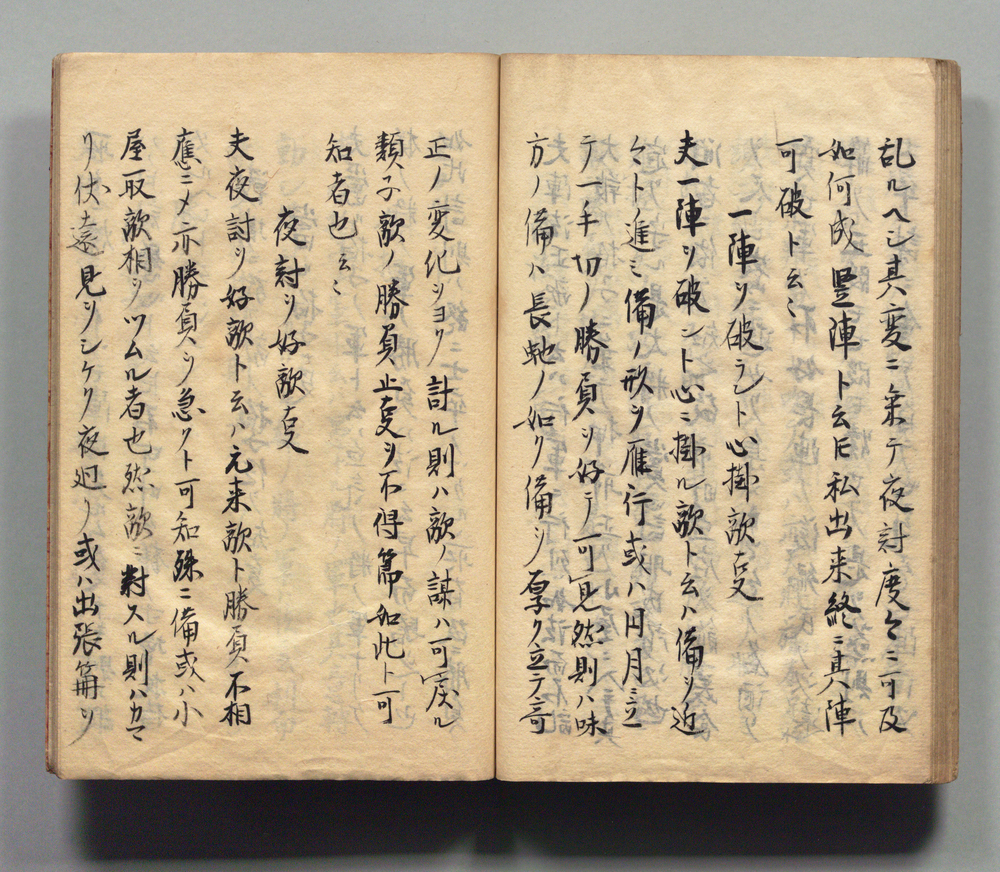 乱ルヘシ其変ニ乗テ夜討度々ニ可及
如何成堅陣ト云𪜈私出来終ニ其陣
可破ト云々
一陣ヲ破ラント心掛敵㕝
夫一陣ヲ破ント心ニ掛ル敵ト云ハ備ヲ近
々ト進ミ備ノ形ヲ雁行或ハ円月ニ立
テ一手切ノ勝負ヲ好テ可見然則ハ味
方ノ備ハ長虵ノ如ク備ヲ厚ク立テ奇
正ノ変化ヲヨク計ル則ハ敵ノ謀ハ可戻ル
類ナ敵ノ勝負止㕝ヲ不得節如此ト可
知者也云々
夜討ヲ好敵㕝
夫夜討ヲ好敵ト云ハ元来敵ト勝負不相
應ニメ亦勝負ヲ急クト可知殊ニ備或ハ小
屋取敵相ヲツムル者也然敵ニ對スル則ハカマ
リ伏遠見ヲシケク夜廻リ或ハ出張篝ヲ